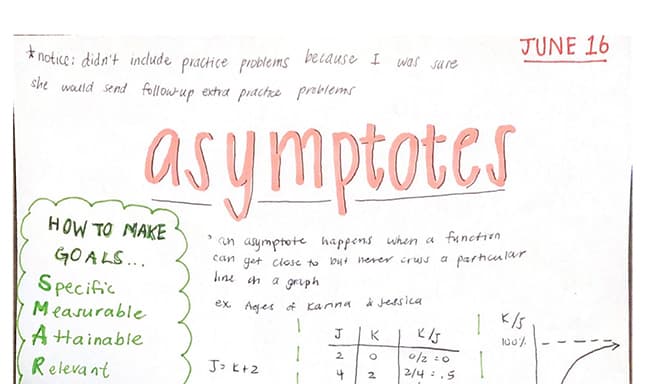 *notice: didn't include practice problems because I was sure
she would send followup extra practice problems
JUNE 16
asymptotes
HOW TO MAKE
GOALS...
Specific
Measurable
Attainable
Relevant
* an asymptote happens when a function
can get close to but never cross a particular
line on a graph
ex. Ages of Karina & Jessica
J= K+2
J K K/J
2 0 0/2 = 0
4 2 2/4 = .5
K/J
100%